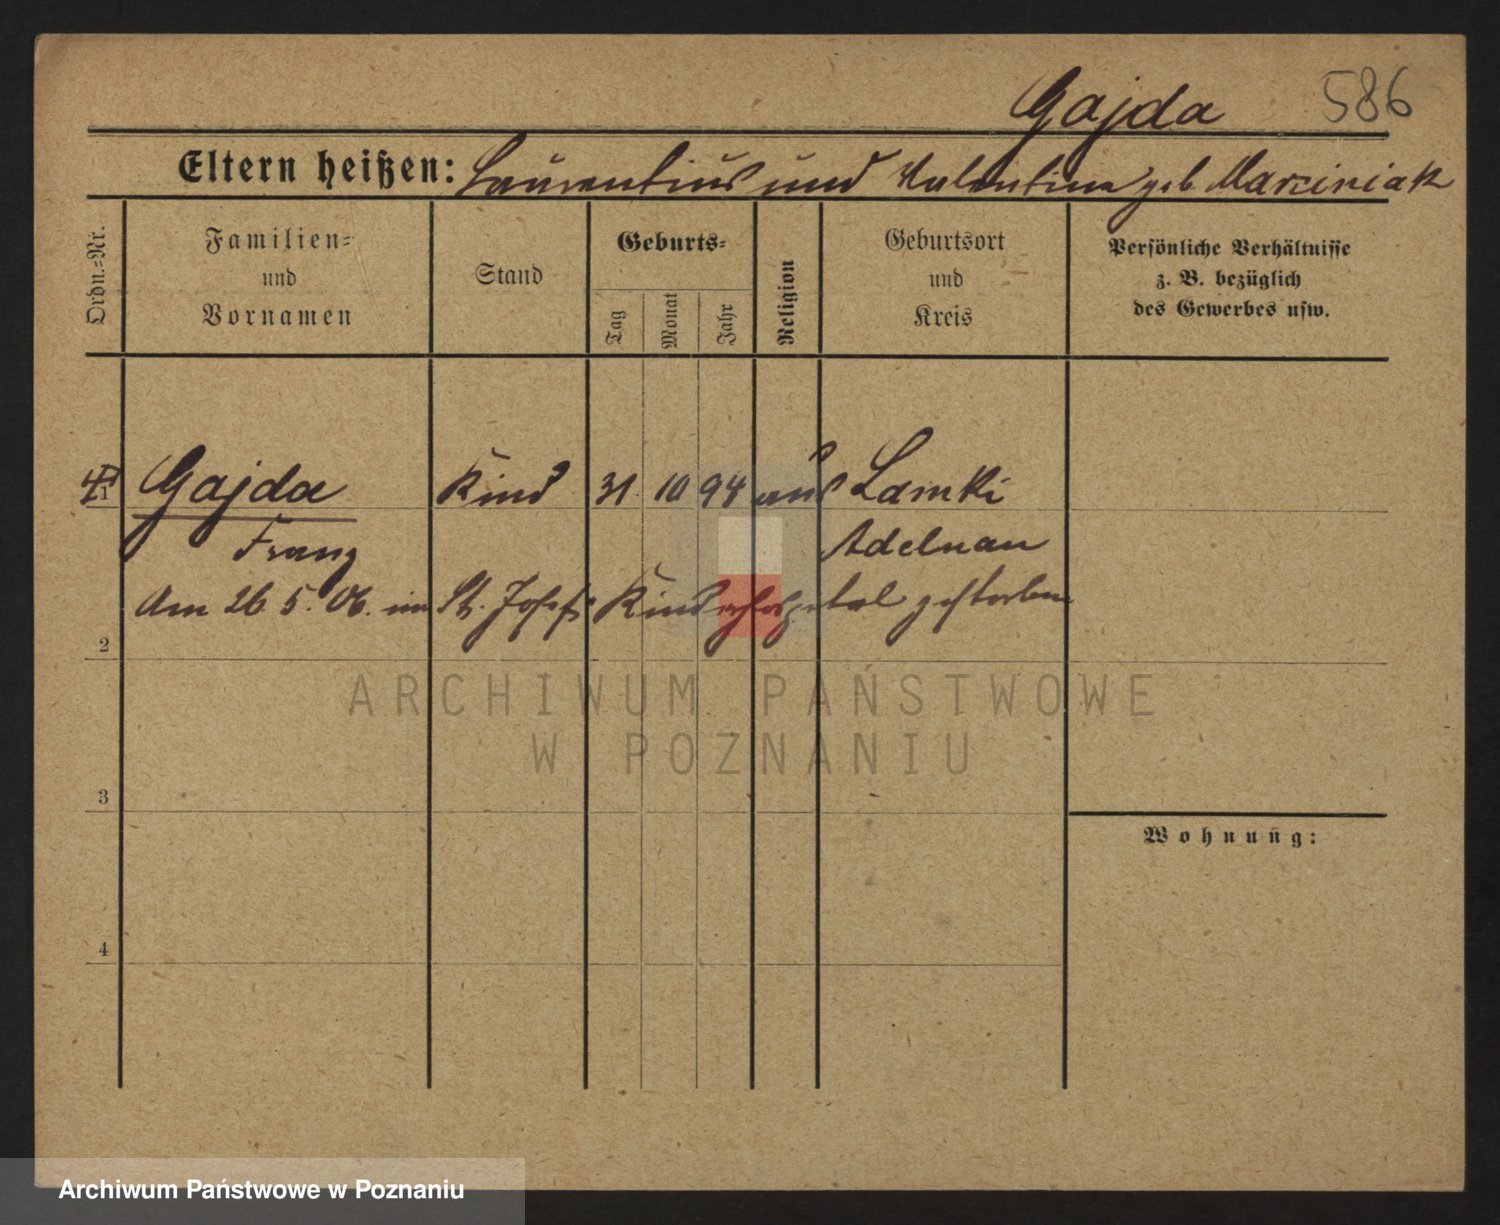 Gajda 586
Eltern heißen: Laurentius und Valentina geb Marciniak
Ordn.=Nr.
Familien=
und
Vornamen
Stand
Geburts=
Tag
Monat
Jahr
Religion
Geburtsort
und
Kreis
Persönliche Verhältnisse
z. B. bezüglich
des Gewerbes usw.
1 Gajda Kind 31 10 94 aus Lamki
Franz Adelnau
Am 26 5. 06. im St. Josefs Kinderhospital gestorben
2
ARCHIWUM PAŃSTWOWE
W POZNANIU
3
Wohnung:
4
Archiwum Państwowe w Poznaniu